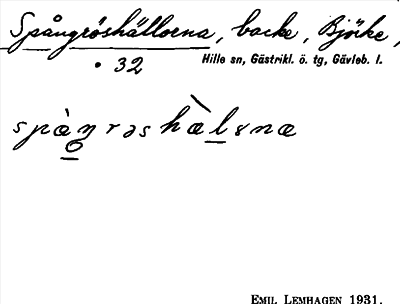 Spångröshällorna, backe, Björke,
• 32 Hille sn, Gästrikl. ö. tg, Gävleb. l.
EMIL LEMHAGEN 1931.